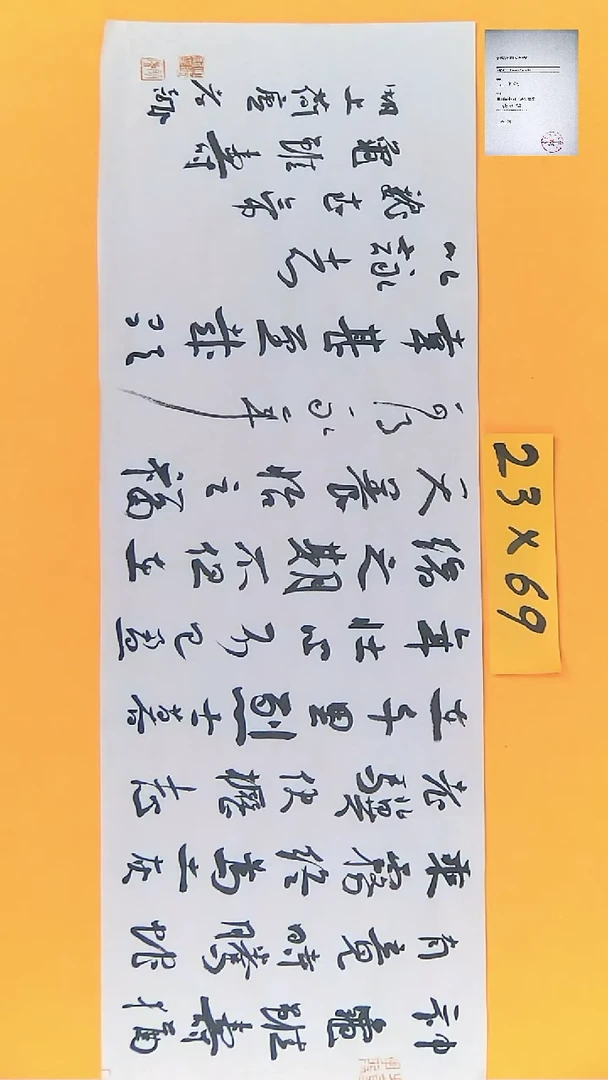 神龜雖壽猶
有竟時騰蛇
乘霧終為土灰
老驥伏櫪志
在千里烈士暮
年壯心不已盈
縮之期不但在
天養怡之福
可得永年
幸甚至哉歌
以詠志
魏武帝
龜雖壽
湖上
23×69